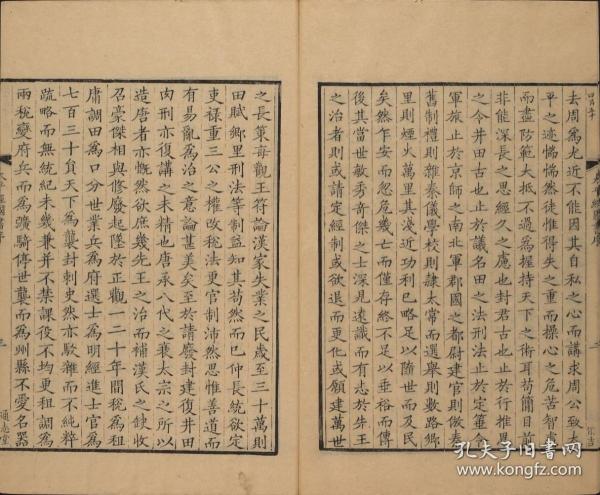 去周為尤近不能因其自私之心而講求周公致太
平之迹惴惴然徒惟得失之重而操心之危苦智慮
而盡防範大抵不過為握持天下之術耳苟簡目前
非能深長之思經久之慮也封君古也止於行推恩
之令井田古也止於議名田之法刑法止於定箠令
軍旅止於京師之南北軍郡國之都尉建官則倣秦
舊制禮則雜秦儀學校則隷太常而選舉則數路鄉
里則煙火萬里其淺近功利已略足以隨世而及民
矣然乍安而忽危幾亡而僅存終不足以垂裕而傳
後其當世敏秀奇傑之士深見遠識而有志於先王
之治者則或請定經制或欲退而更化或願建萬世
之長策每觀王符論漢家失業之民歲至三十萬則
田賦鄉里刑法等制益知其苟然而已仲長統欲定
吏祿重三公之權改稅法更官制沛然思惟善道而
有易亂為治之意論甚美矣至於請廢封建復井田
肉刑亦復講之未精也唐承八代之衰太宗之所以
造唐者亦慨然欲庶幾先王之治而補漢氏之缺收
召豪傑相與修廢起墜於正觀一二十年間稅為租
庸調田為口分世業兵為府選士為明經進士官為
七百三十負天下為襲封刺史然亦駁雜而不純粹
疏略而無統紀未幾兼并不禁課役不均更租調為
兩稅變府兵而為彍騎停世襲而為州縣不愛名器
太平經國書序
三
通志堂
孔夫子旧书网
www.kongfz.com